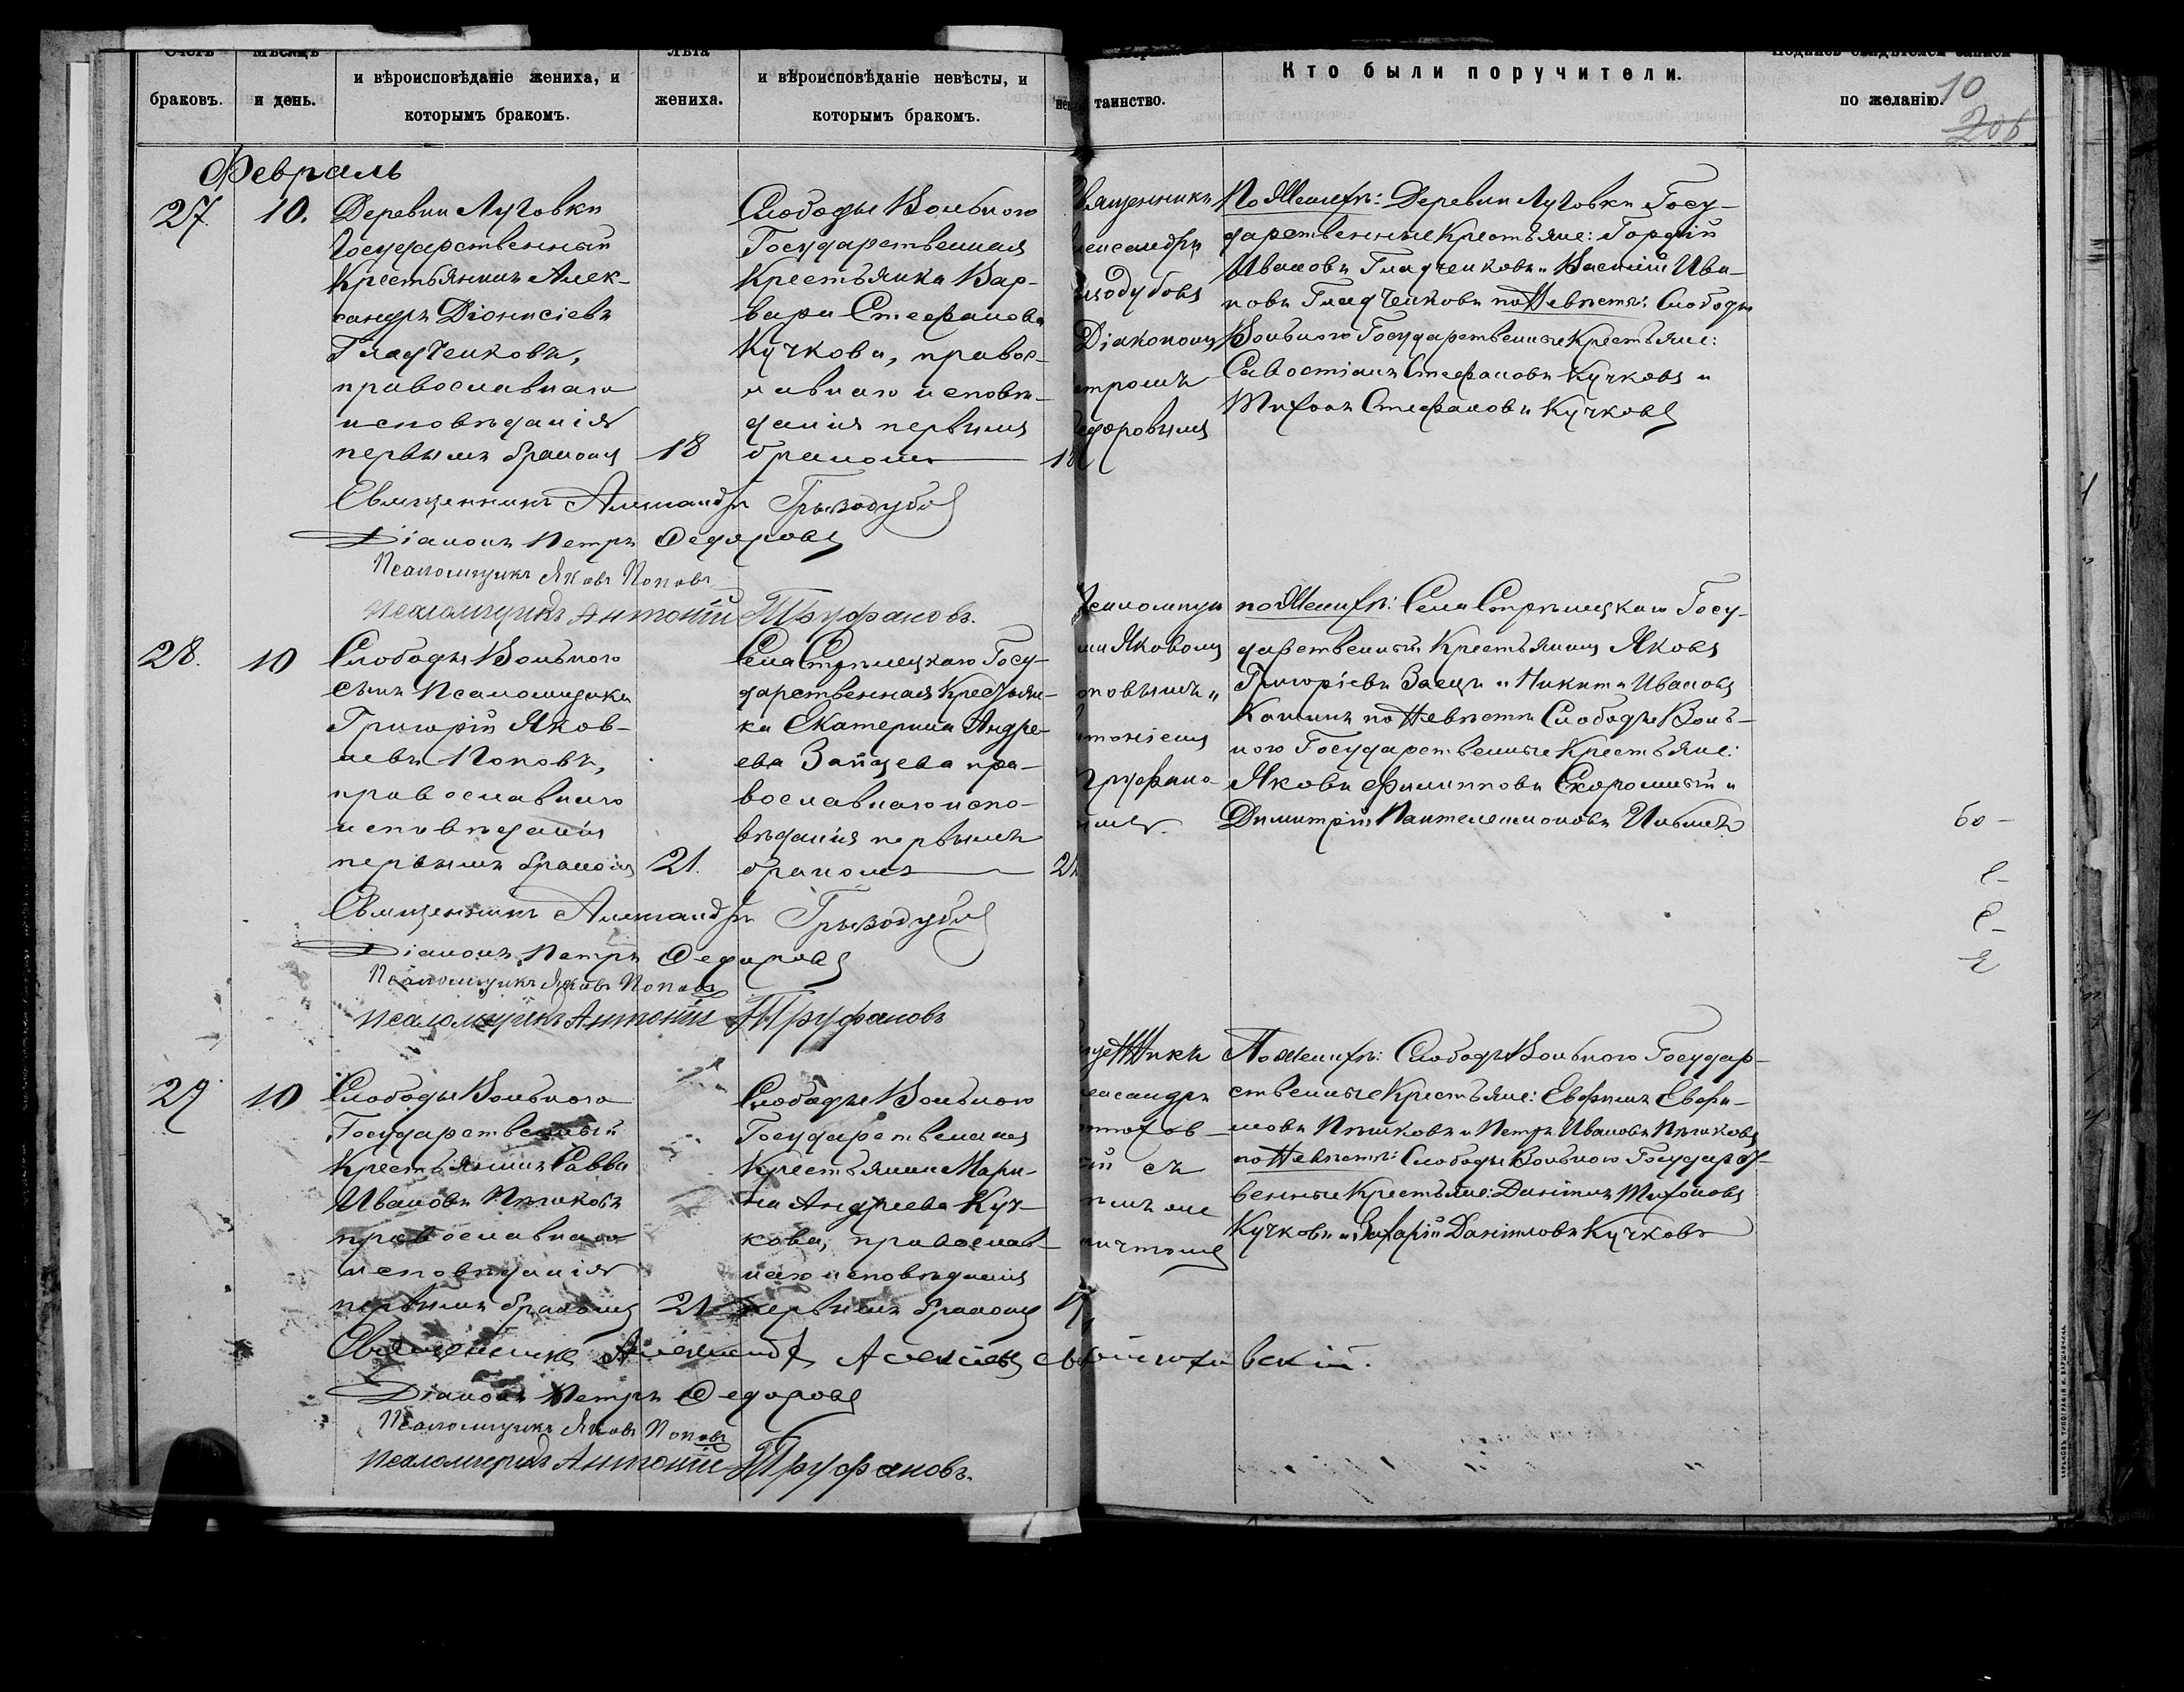 Счетъ
браковъ.
Мѣсяцъ
и день.
и вѣроисповѣданіе жениха, и
которымъ бракомъ.
Лѣта
жениха.
и вѣроисповѣданіе невѣсты, и
которымъ бракомъ.
таинство.
Кто были поручители.
Подпись свидѣтелей записи
по желанію.
10
206
Февраль
27.
10.
Деревни Луговки
Государственный
Крестьянинъ Алек-
сандръ Діонисіевъ
Гладченковъ,
православнаго
исповѣданія
первымъ бракомъ
18
Слободы Вольного
Государственная
Крестьянка Вар-
вара Стефанова
Кучкова, правос-
лавнаго исповѣ-
данія первымъ
бракомъ
18
вященникъ
лександръ
ызодубовъ
Діакономъ
етромъ
едоровымъ
По Женихѣ: Деревни Луговки Госу-
дарственные Крестьяне: Гордій
Ивановъ Гладченковъ и Василій Ива-
новъ Гладченковъ по Невѣстѣ: Слободы
Вольного Государственные Крестьяне:
Савостіанъ Стефановъ Кучковъ и
Тихонъ Стефановъ Кучковъ
Священникъ Александръ Грызодубовъ
Діаконъ Петръ Федоровъ
Псаломщикъ Яковъ Поповъ
Псаломщикъ Антоній Труфановъ.
28.
10
Слободы Вольного
сынъ Псаломщика
Григорій Яков-
левъ Поповъ,
православнаго
исповѣданія
первымъ бракомъ
21.
Села Стрѣлецкаго Госу-
дарственная Крестьян-
ка Екатерина Андре-
ева Зайцева пра-
вославнаго испо-
вѣданія первымъ
бракомъ
21
Псаломщи
ми Яковомъ
оповымъ и
нтоніемъ
Труфано-
ымъ.
по Женихѣ: Села Стрѣлецкаго Госу-
дарственный Крестьянинъ Яковъ
Григоріевъ Заецъ и Никита Ивановъ
по Невѣстѣ Слободы Воль-
ного Государственные Крестьяне:
Яковъ Филипповъ Скоромный и
Димитрій Пантелеимоновъ
Священникъ Александръ Грызодубовъ
Діаконъ Петръ Федоровъ
Псаломщикъ Яковъ Поповъ
Псаломщикъ Антоній Труфановъ
29
10
Слободы Вольного
Государственный
Крестьянинъ Савва
Ивановъ Пѣшковъ
православнаго
исповѣданія
первымъ бракомъ
21
Слободы Вольного
Государственная
Крестьянка Мари-
на Андреева Куч-
кова, православ-
наго исповѣданія
первымъ бракомъ
щенникъ
лександръ
ій съ
ичтомъ
По Женихѣ: Слободы Вольного Государ-
ственные Крестьяне: Евфимъ Евфи-
мовъ Пѣшковъ и Петръ Ивановъ Пѣшковъ
по Невѣстѣ: Слободы Вольного Государст-
венные Крестьяне: Даніилъ Тихоновъ
Кучковъ и Захарій Даніиловъ Кучковъ
Священникъ Александръ Алексѣевъ
Діаконъ Петръ Федоровъ
Псаломщикъ Яковъ Поповъ
Псаломщикъ Антоній Труфановъ.